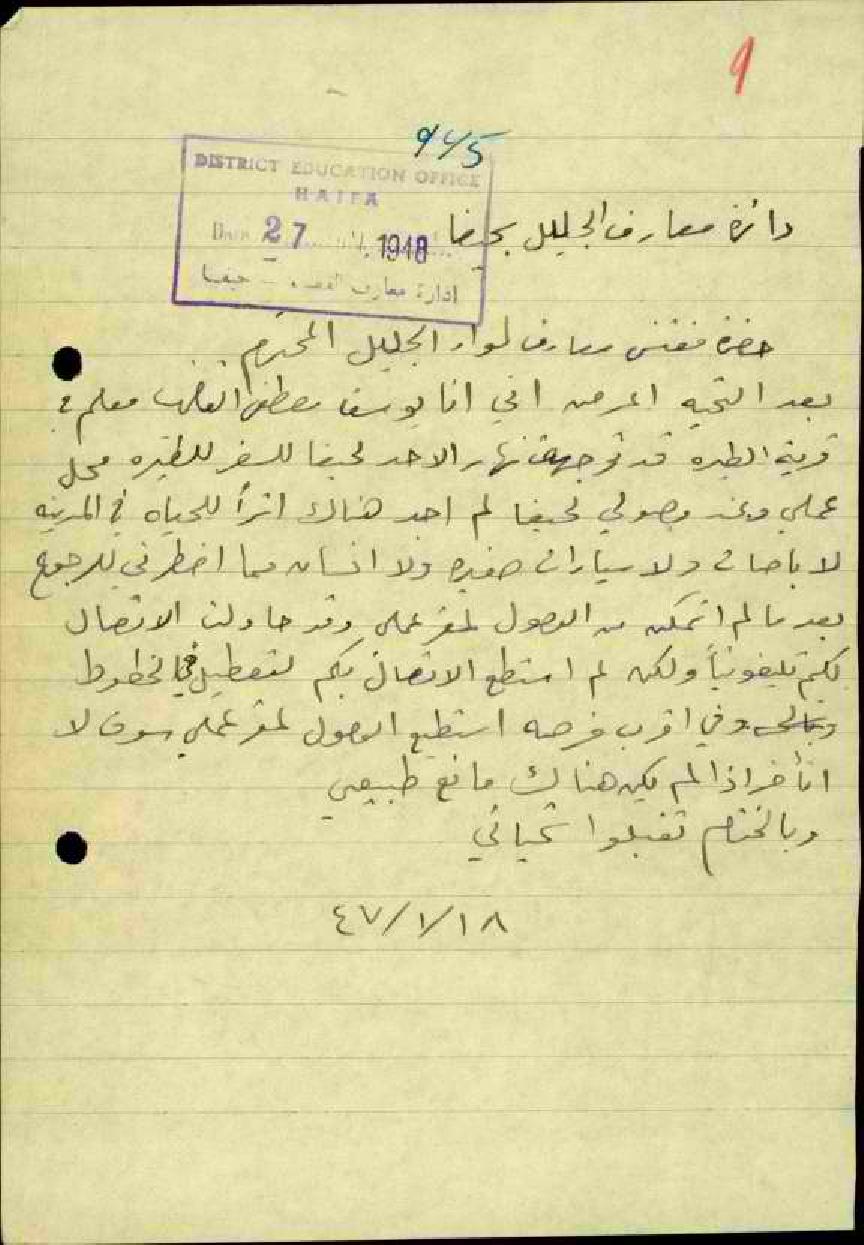 9
945
DISTRICT EDUCATION OFFICE
HAIFA
Date 27 1948
ادارة معارف حيفا
دائرة معارف الجليل بحيفا
حضرة مفتش معارف لواء الجليل المحترم
بعد التحيه اعرض اني انا يوسف مصطفى معلم في
قرية الطيره قد توجهت نهار الاحد لحيفا للسفر للطيره محل
عملي وعند وصولي لحيفا لم اجد هناك اثراً للحياه في المدينه
لا باصات ولا سيارات صغيره ولا انسان مما اضطرني للرجوع
بعد ما لم اتمكن من الوصول لمقر عملي وقد حاولت الاتصال
بكم تليفونياً ولكن لم استطع الاتصال بكم لتعطيل في الخطوط
وفي اقرب فرصه استطيع الوصول لمقر عملي سوف لا
اتأخر اذا لم يكن هناك مانع طبيعي
وبالختام تفبلوا تحياتي
٤٧/١/١٨